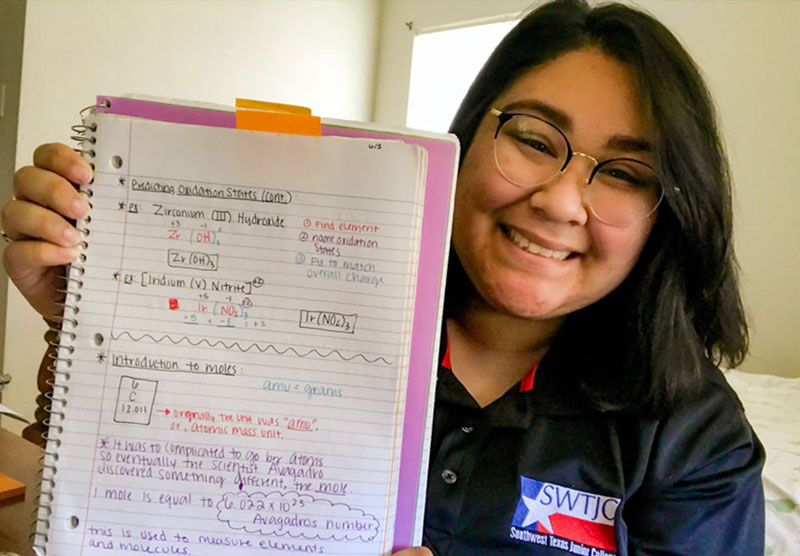 6/3
* Predicting Oxidation States (cont.):
* ex: Zirconium (III) Hydroxide
+3 -1
Zr (OH)3
Zr(OH)3
① Find element
② name oxidation
States
③ Fix to match
overall charge
* ex: [Iridium (V) Nitrite]+2
+5 -1 +2
Ir (NO2)3
+5 + -3 = +2
Ir(NO2)3
* Introduction to moles:
amu = grams
6
C
12.011
→ originally the unit was "amu".
or, atomic mass unit.
* It was to complicated to go by atoms
so eventually the scientist Avagadro
discovered something different, the mole.
1 mole is equal to 6.022 x 10^23
Avagadros number
this is used to measure elements
and molecules.
SWTJC
Southwest Texas Junior College